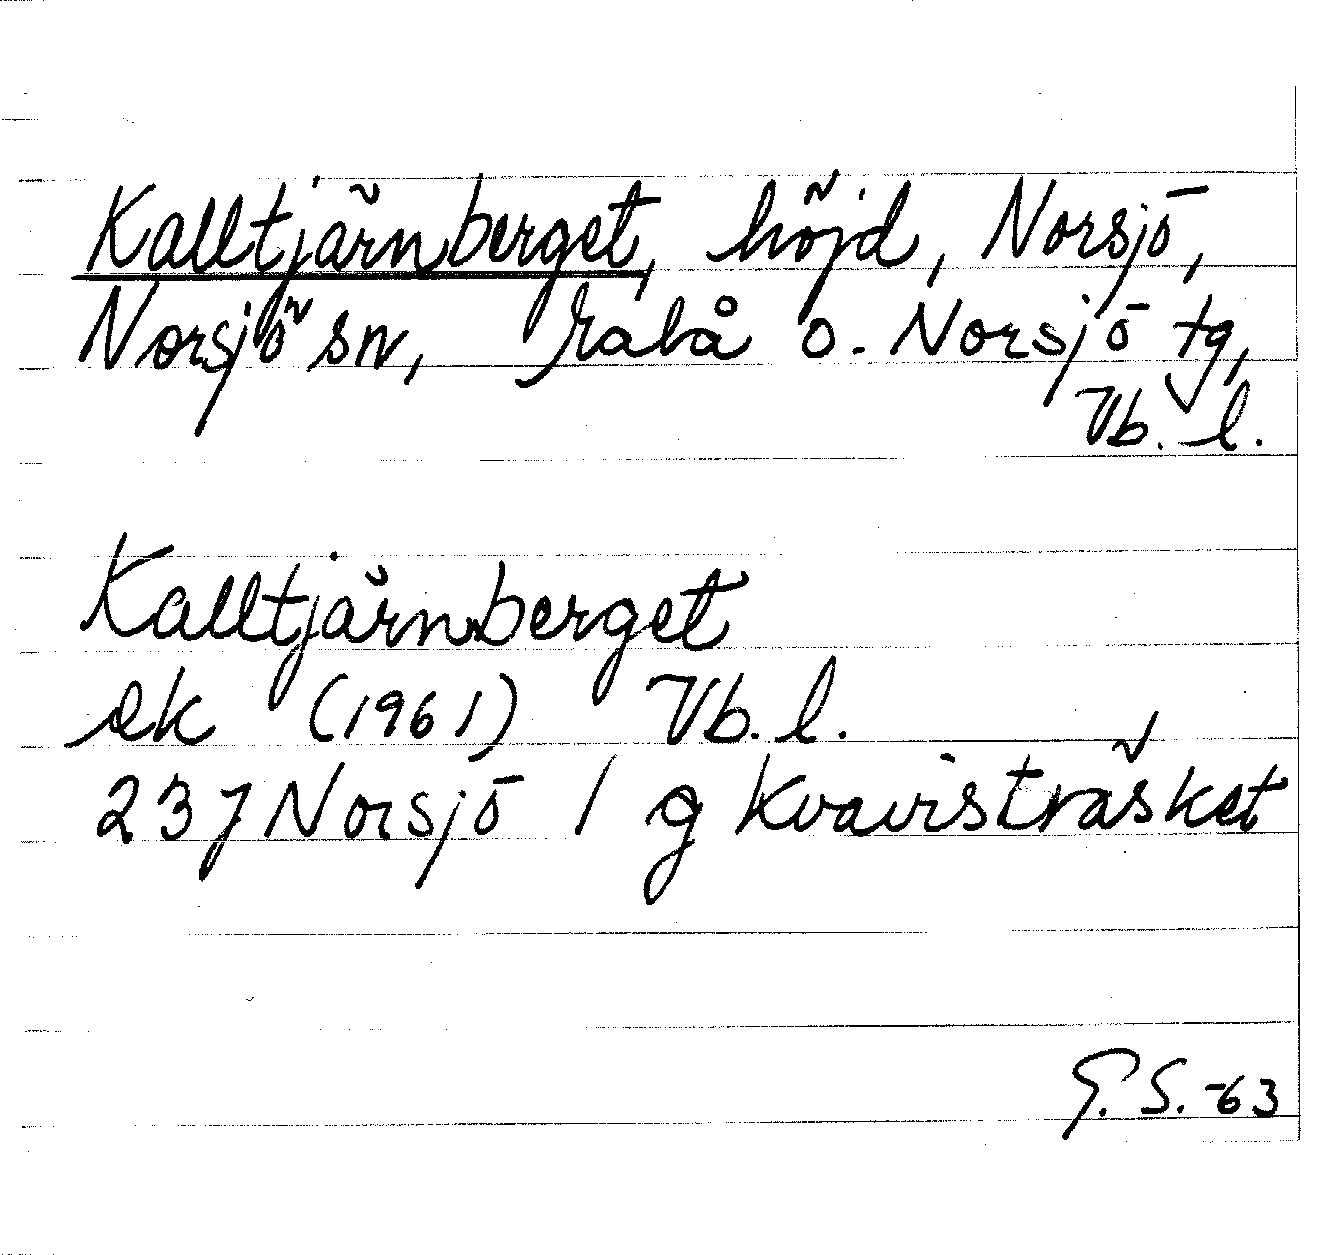 Kalltjärnberget, höjd, Norsjö,
Norsjö sn, Malå o. Norsjö tg,
Vb. l.
Kalltjärnberget
ek (1961) Vb. l.
237 Norsjö / g Kvavisträsket
G. S. -63